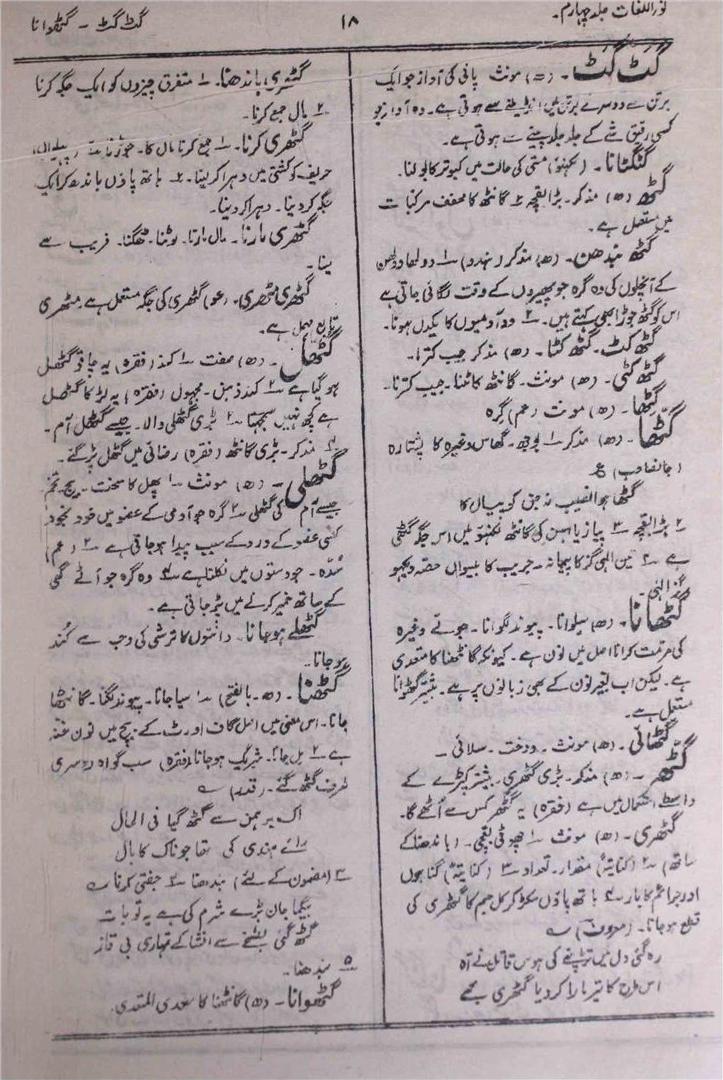 نور اللغات جلد چہارم۔
۱۸
گٹ گٹ – گٹھوانا
گٹ گٹ۔ (ھ) مونث پانی کی آواز جو ایک
برتن سے دوسرے برتن میں انڈیلنے سے ہوتی ہے۔ وہ آواز جو
کسی رقیق شے کے جلد جلد پینے سے ہوتی ہے۔
گٹکٹانا۔ (لکھنؤ) مستی کی حالت میں کبوتر کا بولنا۔
گٹھ (ھ) مذکر۔ بڑا بقچہ ۲ گانٹھ کا مخفف مرکبات
میں مستعمل ہے۔
گٹھ بندھن۔ (ھ) مذکر (ہندو) ۱ دولھا دولھن
کے آنچلوں کی وہ گرہ جو پھیروں کے وقت لگائی جاتی ہے
اس کو گٹھ جوڑا بھی کہتے ہیں۔ ۲ دو آدمیوں کا یکدل ہونا۔
گٹھ کٹ۔ گٹھ کٹا۔ (ھ) مذکر جیب کترا۔
گٹھ کٹی۔ (ھ) مونث۔ گانٹھ کاٹنا۔ جیب کترنا۔
گٹھا۔ (ھ) مونث (عم) گرہ
گٹھا۔ (ھ) مذکر ۱ بوجھ۔ گھاس وغیرہ کا پشتارہ
(جانصاحب) ع
گٹھا ہوا نصیب نہ جن کو پیال کا
۲ بڑا بقچہ ۳ پیاز یا لہسن کی گانٹھ لکھنؤ میں اس جگہ گٹھی
ہے ۴ تین الٰہی گز کا پیمانہ۔ جریب کا بیسواں حصہ دیکھو
گز الٰہی۔
گٹھانا۔ (ھ) سلوانا۔ پیوند لگوانا۔ جوتے وغیرہ
کی مرمت کرانا اصل میں نون ہے۔ کیونکہ گانٹھنا کا متعدی
ہے۔ لیکن اب بغیر نون کے بھی زبانوں پر ہے۔ بیشتر گٹھوانا
مستعمل ہے۔
گٹھائی۔ (ھ) مونث۔ دوخت۔ سلائی۔
گٹھر۔ (ھ) مذکر۔ بڑی گٹھری۔ بیشتر کپڑے کے
واسطے استعمال میں ہے (فقرہ) یہ گٹھر کس سے اُٹھے گا۔
گٹھری۔ (ھ) مونث ۱ چھوٹی بقچی۔ (باندھنا کے
ساتھ) ۲ (کنایۃً) مقدار۔ تعداد ۳ (کنایۃً) گناہوں
اور جرائم کا بار ۴ ہاتھ پاؤں سکڑ کر کل جسم کا گٹھری کی
قطع ہو جانا۔ (معروف) ؎
رہ گئی دل میں تڑپنے کی ہوس قاتل نے آہ
اس طرح کا تیر مارا کر دیا گٹھری مجھے
گٹھری باندھنا۔ ۱ متفرق چیزوں کو ایک جگہ کرنا
۲ مال جمع کرنا۔
گٹھری کرنا۔ ۱ جمع کرنا مال کا۔ جوڑنا ۲ (پہلوان)
حریف کو کشتی میں دہرا کر لینا۔ ۳ ہاتھ پاؤں باندھ کر ایک
جگہ کر دینا۔ دہرا کر دینا۔
گٹھری مارنا۔ مال مارنا۔ لوٹنا۔ ٹھگنا۔ فریب سے
لینا۔
گٹھری مٹھری۔ (عو) گٹھری کی جگہ مستعمل ہے مٹھری
تابع مہمل ہے۔
گٹھل۔ (ھ) صفت ۱ کند (فقرہ) یہ چاقو گٹھل
ہو گیا ہے ۲ کند ذہن۔ مجہول (فقرہ) یہ لڑکا گٹھل
ہے کچھ نہیں سمجھتا ۳ بڑی گٹھلی والا۔ جیسے گٹھل آم۔
۴ مذکر۔ بڑی گانٹھ (فقرہ) رضائی میں گٹھل پڑ گئے۔
گٹھلی۔ (ھ) مونث ۱ پھل کا سخت۔ بیج۔ تخم
جیسے آم کی گٹھلی ۲ گرہ جو آدمی کے عضو میں خود بخود
کسی عضو کے درد کے سبب پیدا ہو جاتی ہے ۳ (عم)
سُدّہ۔ جو دستوں میں نکلتا ہے ۴ وہ گرہ جو آٹے گھی
کے ساتھ خمیر کرنے میں پڑ جاتی ہے۔
گٹھلے ہو جانا۔ دانتوں کا ترشی کی وجہ سے کُند
ہو جانا۔
گٹھنا۔ (ھ۔ بالفتح) ۱ سیا جانا۔ پیوند لگنا۔ گانٹھا
جانا۔ اس معنی میں اصل گاف اور ٹ کے بیچ میں نون غنہ
ہے ۲ مل جانا۔ شریک ہو جانا (فقرہ) سب گواہ دوسری
طرف گٹھ گئے۔ (قدیم) ؎
اک برہمن سے گٹھ گیا فی الحال
رائے ہندی کی تھا جو ناک کا بال
۳ (مضمون کے لئے) بندھنا ۴ جفتی کرنا ؎
بیگما جان بڑے شرم کی ہے یہ تو بات
گٹھ گئی بلخنے سے انشا کے تمہاری بی قاز
۵ بندھنا۔
گٹھوانا۔ (ھ) گانٹھنا کا متعدی المتعدی۔